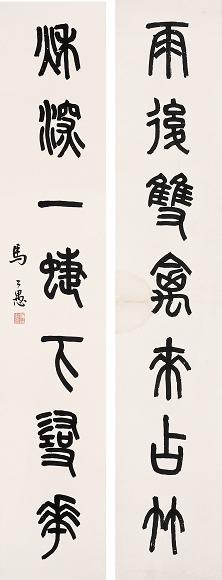 雨後雙禽來占竹
秌深一蜨下尋花
馬公愚